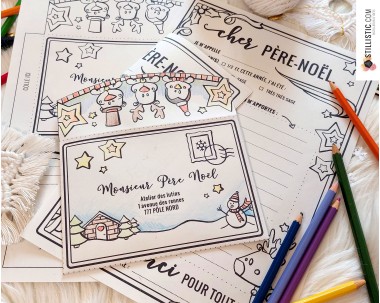 STILLISTIC.COM
COLLE ICI
Monsieur
cher PÈRE-NOËL
JE M'APPELLE
ET CETTE ANNÉE, J'AI ÉTÉ
TRÈS TRÈS SAGE
APPORTES :
Monsieur Père Noël
Atelier des lutins
1 avenue des rennes
777 PÔLE NORD
POUR TOUT